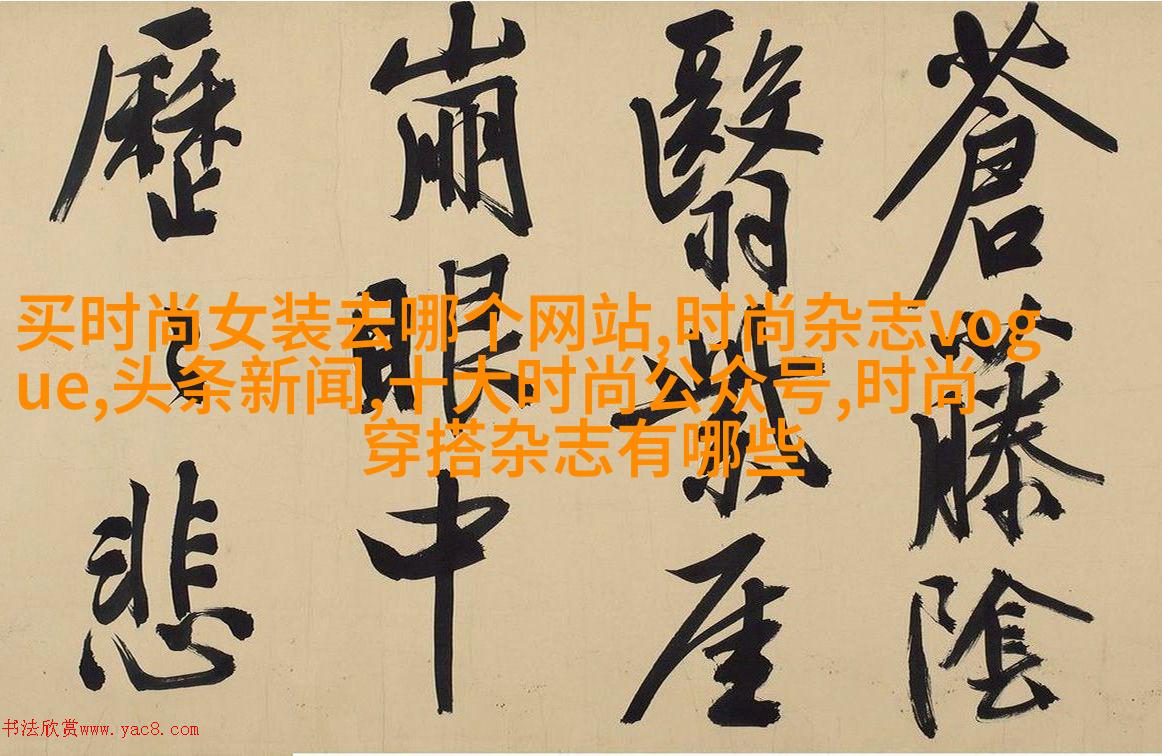 蒼藤陰
翳紫厓
崩眼中
歷〻悲
买时尚女装去哪个网站,时尚杂志vog
ue,头条新闻,十大时尚公众号,时尚
穿搭杂志有哪些
书法欣赏www.yac8.com